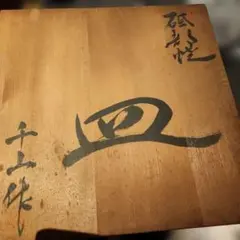 砥部焼
皿
千山作